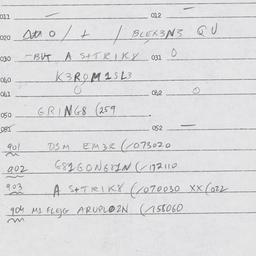 011 — 012 —
020 0 / + / BLEK3N3 QU
030 -BUT A S+TRIKY 031 0
060 K3ROM1SL3
061 0 062 0
050 GRING8 (259
051 052 —
901 DSM EM3R (/073020
902 G81GONG81N (/172110
903 A S+TRIK8 (/070030 XX(022
904 M1 FLEJG ARUPLO2N (/158060